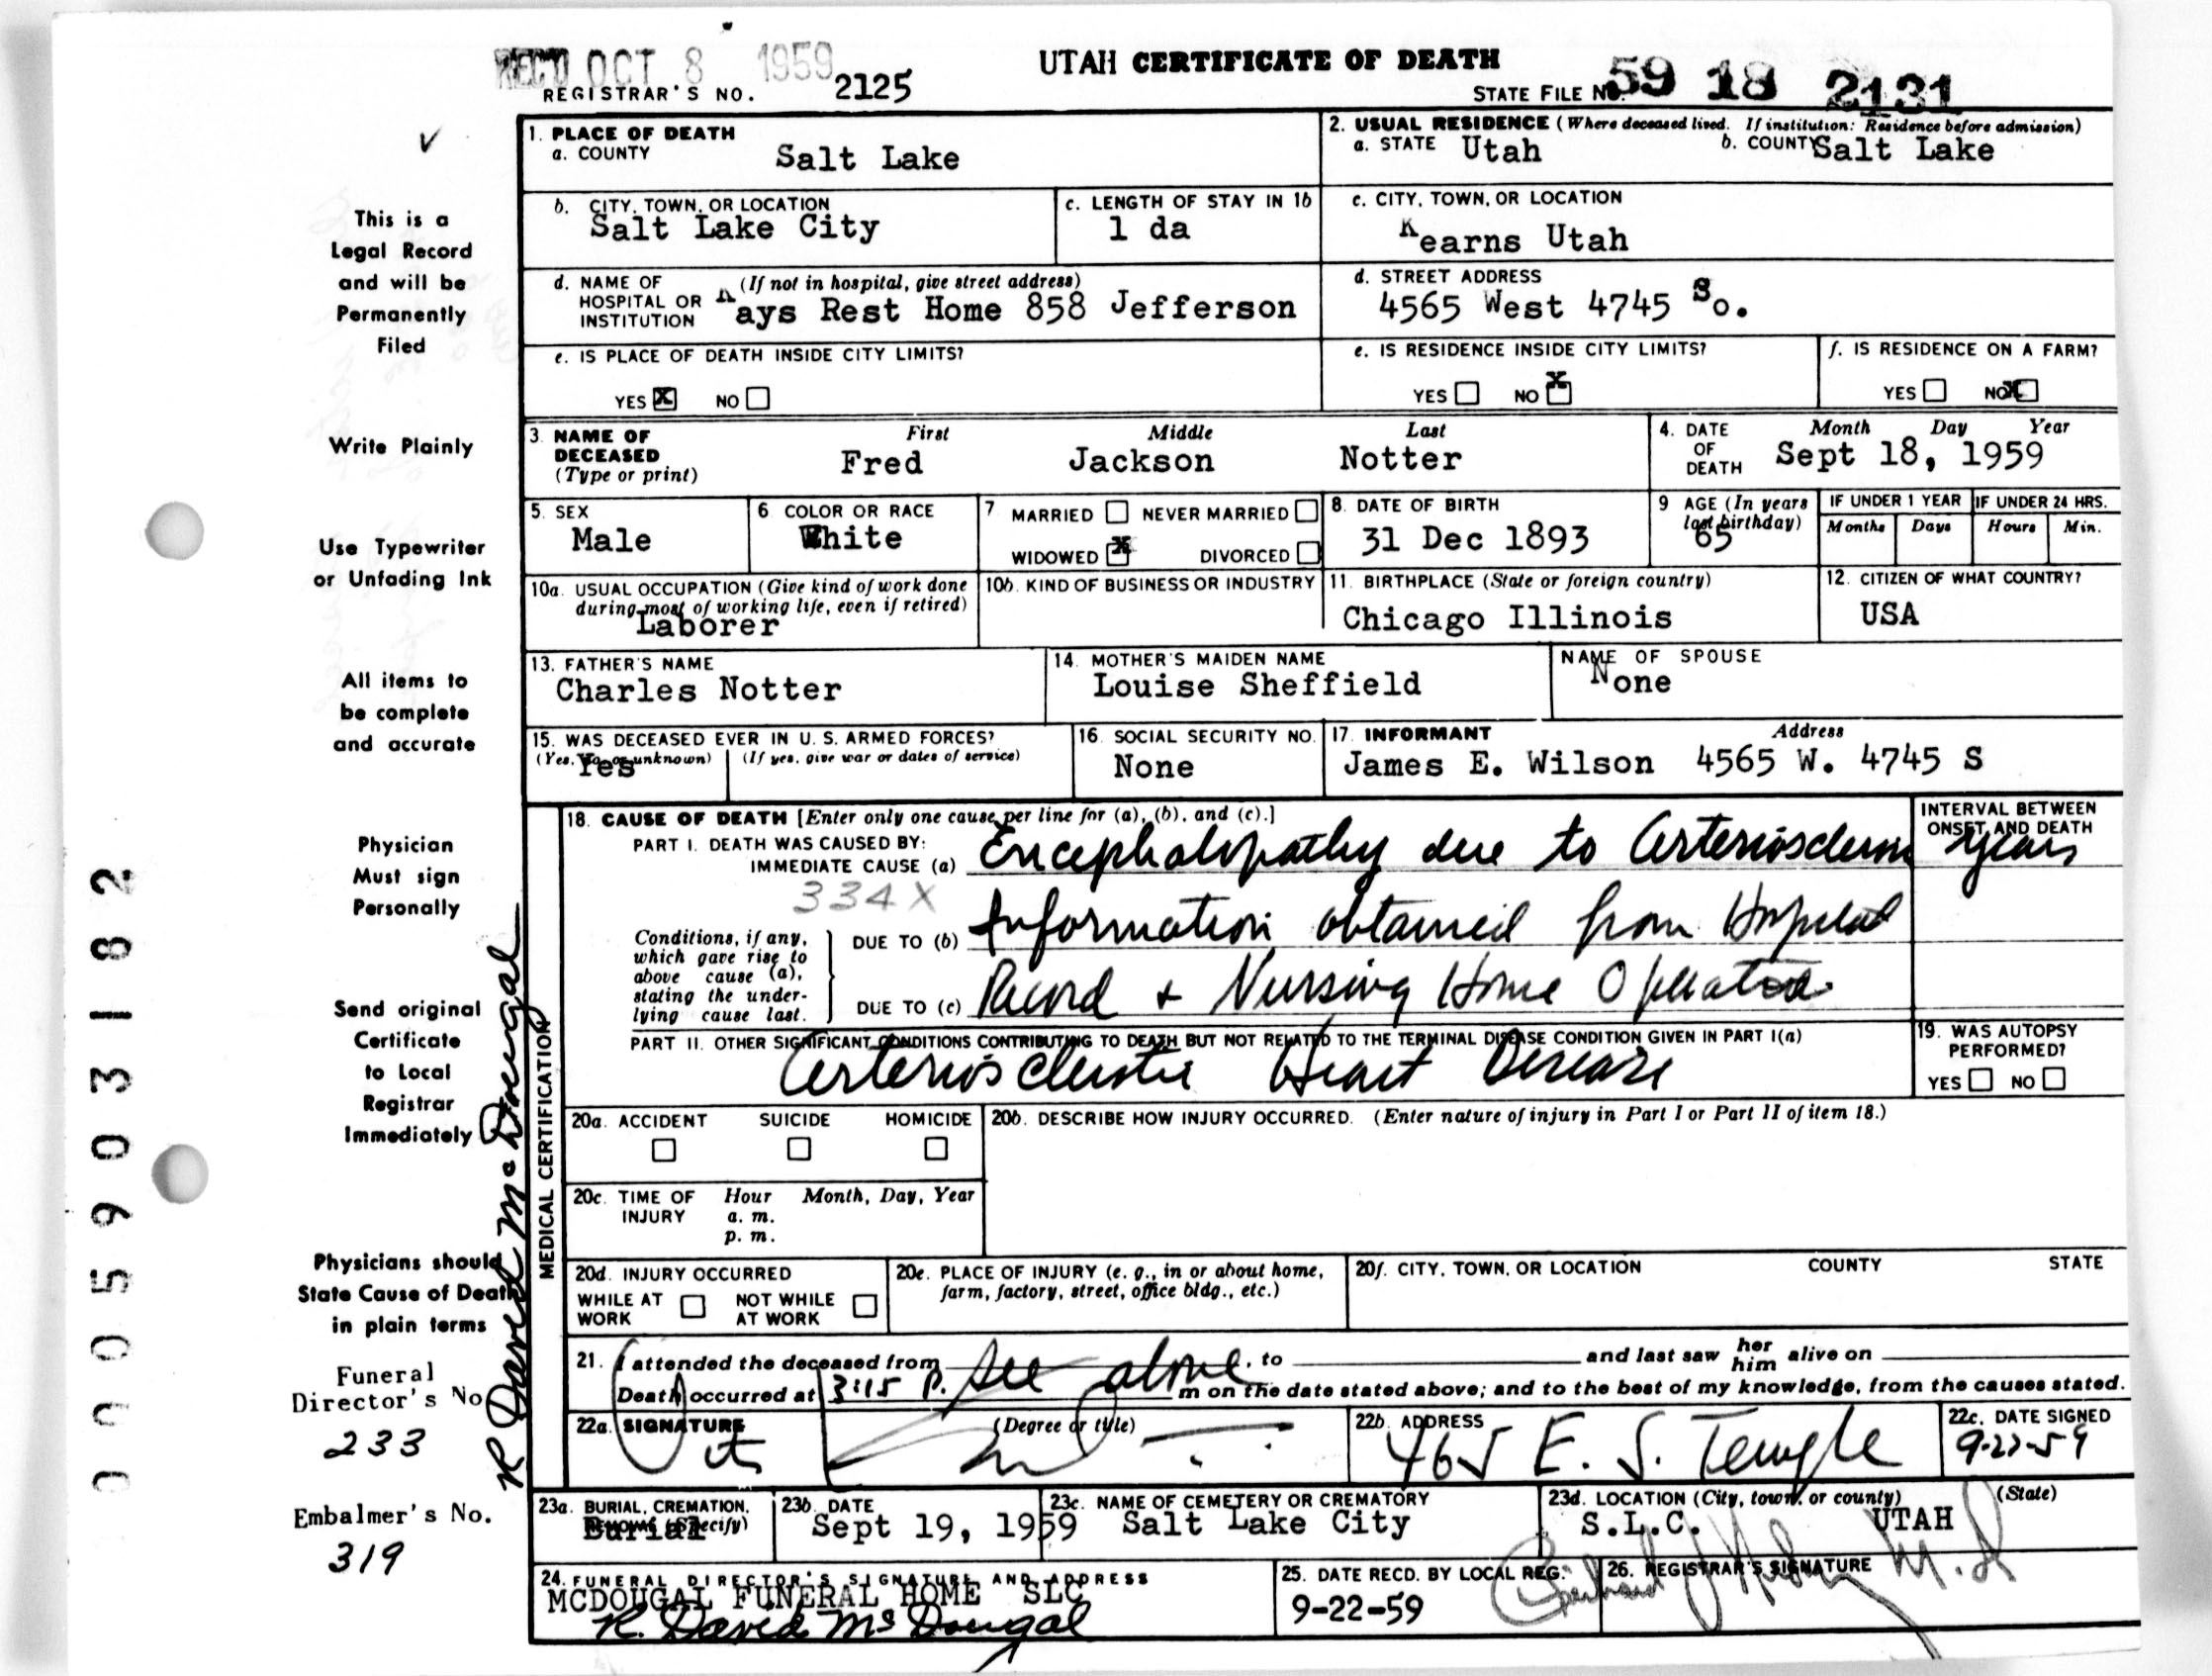 REC'D OCT 8 1959
UTAH CERTIFICATE OF DEATH
REGISTRAR'S NO. 2125
STATE FILE NO. 59 18 2131
1. PLACE OF DEATH
a. COUNTY Salt Lake
2. USUAL RESIDENCE (Where deceased lived. If institution: Residence before admission)
a. STATE Utah b. COUNTY Salt Lake
b. CITY, TOWN, OR LOCATION Salt Lake City
c. LENGTH OF STAY IN 1b 1 da
c. CITY, TOWN, OR LOCATION Kearns Utah
d. NAME OF HOSPITAL OR INSTITUTION (If not in hospital, give street address) Kays Rest Home 858 Jefferson
d. STREET ADDRESS 4565 West 4745 So.
e. IS PLACE OF DEATH INSIDE CITY LIMITS? YES X NO
e. IS RESIDENCE INSIDE CITY LIMITS? YES NO X
f. IS RESIDENCE ON A FARM? YES NO X
3. NAME OF DECEASED (Type or print) First Fred Middle Jackson Last Notter
4. DATE OF DEATH Month Day Year Sept 18, 1959
5. SEX Male
6 COLOR OR RACE White
7 MARRIED NEVER MARRIED WIDOWED X DIVORCED
8. DATE OF BIRTH 31 Dec 1893
9 AGE (In years last birthday) 65
IF UNDER 1 YEAR Months Days
IF UNDER 24 HRS. Hours Min.
10a. USUAL OCCUPATION (Give kind of work done during most of working life, even if retired) Laborer
10b. KIND OF BUSINESS OR INDUSTRY
11. BIRTHPLACE (State or foreign country) Chicago Illinois
12. CITIZEN OF WHAT COUNTRY? USA
13. FATHER'S NAME Charles Notter
14. MOTHER'S MAIDEN NAME Louise Sheffield
NAME OF SPOUSE None
15. WAS DECEASED EVER IN U. S. ARMED FORCES? (Yes, no, or unknown) Yes (If yes, give war or dates of service)
16. SOCIAL SECURITY NO. None
17. INFORMANT Address James E. Wilson 4565 W. 4745 S
18. CAUSE OF DEATH [Enter only one cause per line for (a), (b), and (c).]
INTERVAL BETWEEN ONSET AND DEATH
PART I. DEATH WAS CAUSED BY:
IMMEDIATE CAUSE (a) Encephalopathy due to Arteriosclerosis years
334X
Conditions, if any, which gave rise to above cause (a), stating the underlying cause last.
DUE TO (b) Information obtained from Hospital
DUE TO (c) Record + Nursing Home Operator
PART II. OTHER SIGNIFICANT CONDITIONS CONTRIBUTING TO DEATH BUT NOT RELATED TO THE TERMINAL DISEASE CONDITION GIVEN IN PART I(a)
Arteriosclerotic Heart Disease
19. WAS AUTOPSY PERFORMED? YES NO
20a. ACCIDENT SUICIDE HOMICIDE
20b. DESCRIBE HOW INJURY OCCURRED. (Enter nature of injury in Part I or Part II of item 18.)
20c. TIME OF INJURY Hour a. m. p. m. Month, Day, Year
20d. INJURY OCCURRED WHILE AT WORK NOT WHILE AT WORK
20e. PLACE OF INJURY (e. g., in or about home, farm, factory, street, office bldg., etc.)
20f. CITY, TOWN, OR LOCATION COUNTY STATE
21. I attended the deceased from see above, to and last saw her him alive on
Death occurred at 3:15 P. m on the date stated above; and to the best of my knowledge, from the causes stated.
22a. SIGNATURE (Degree or title)
22b. ADDRESS 465 E. S. Temple
22c. DATE SIGNED 9-22-59
23a. BURIAL, CREMATION, REMOVAL (Specify) Burial
23b. DATE Sept 19, 1959
23c. NAME OF CEMETERY OR CREMATORY Salt Lake City
23d. LOCATION (City, town, or county) (State) S.L.C. UTAH
24. FUNERAL DIRECTOR'S SIGNATURE AND ADDRESS
MCDOUGAL FUNERAL HOME SLC
R. David McDougal
25. DATE RECD. BY LOCAL REG. 9-22-59
26. REGISTRAR'S SIGNATURE M.D
MEDICAL CERTIFICATION
This is a
Legal Record
and will be
Permanently
Filed
Write Plainly
Use Typewriter
or Unfading Ink
All items to
be complete
and accurate
Physician
Must sign
Personally
Send original
Certificate
to Local
Registrar
Immediately
Physicians should
State Cause of Death
in plain terms
Funeral
Director's No
233
Embalmer's No.
319
R David McDougal
0005903182